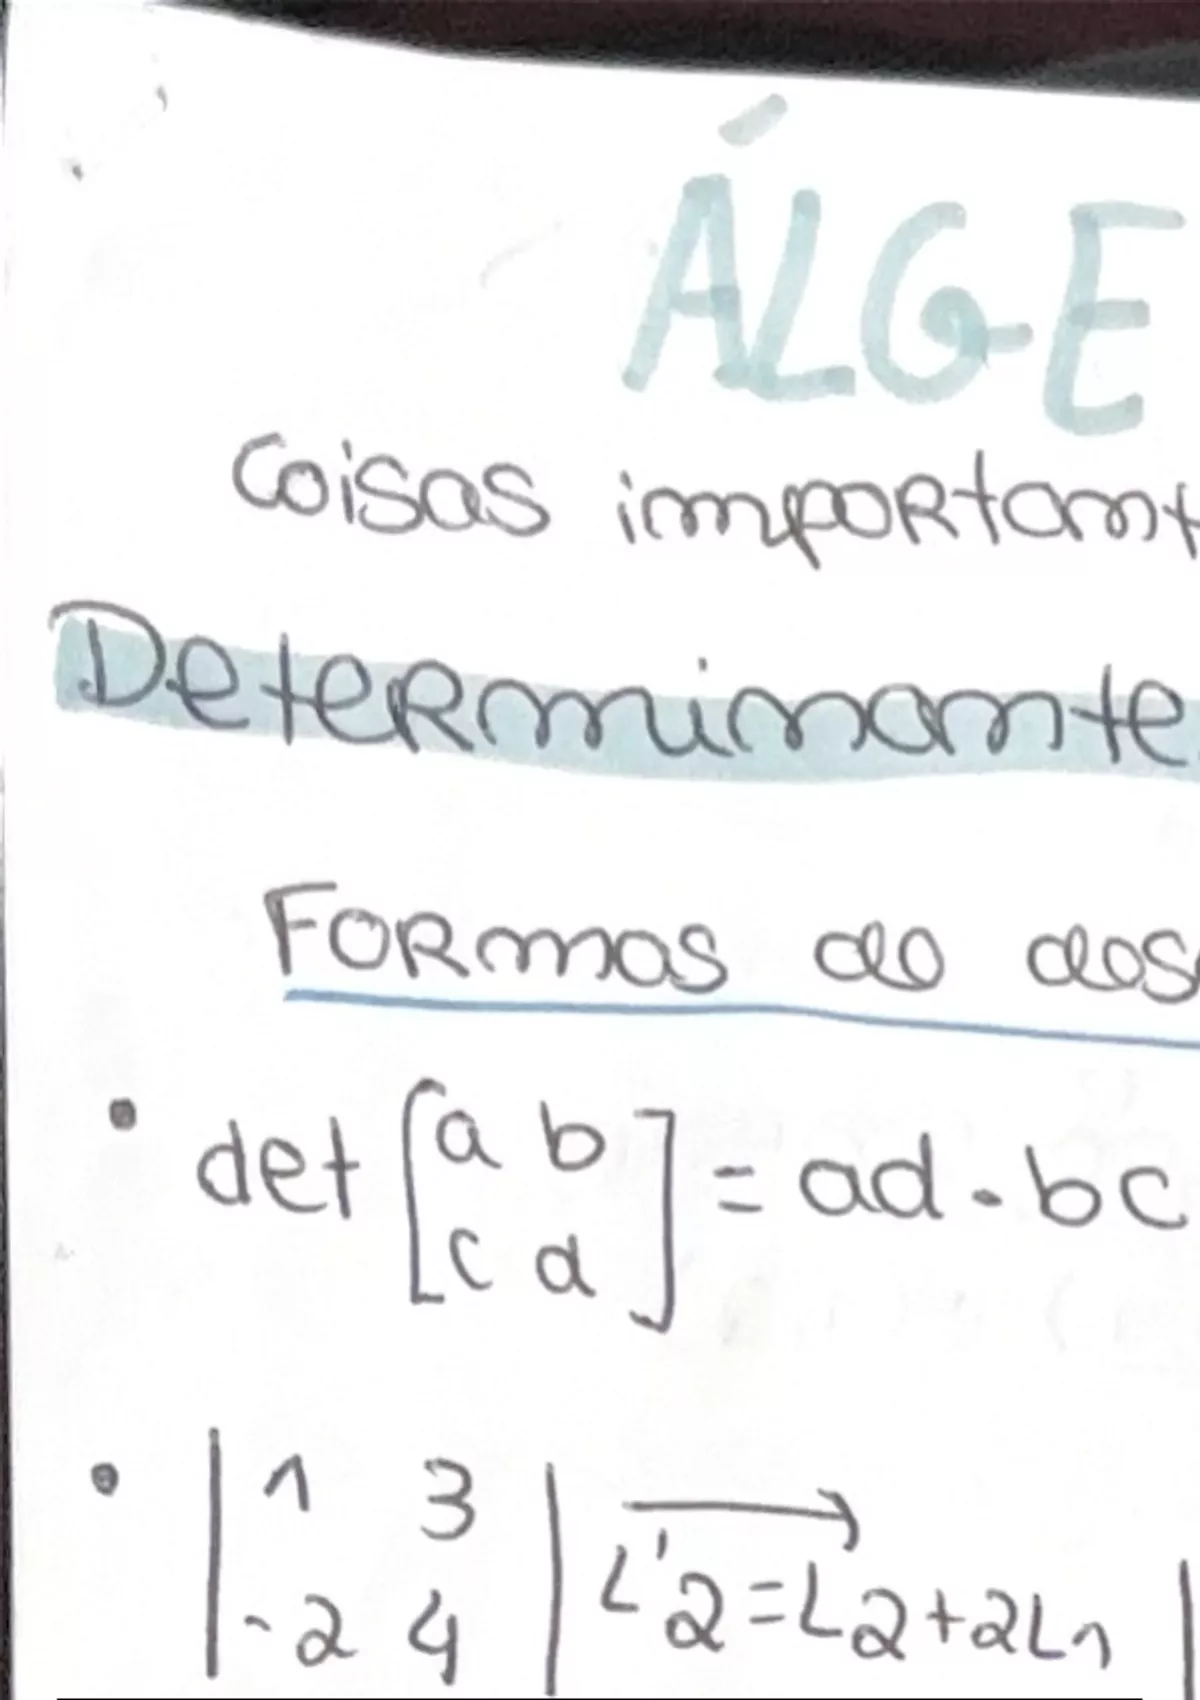 ÁLGE
Coisas important
Determinante
Formas de des
• det [a b
c d] = ad - bc
• |1 3
-2 4| → L'2 = L2 + 2L1 |